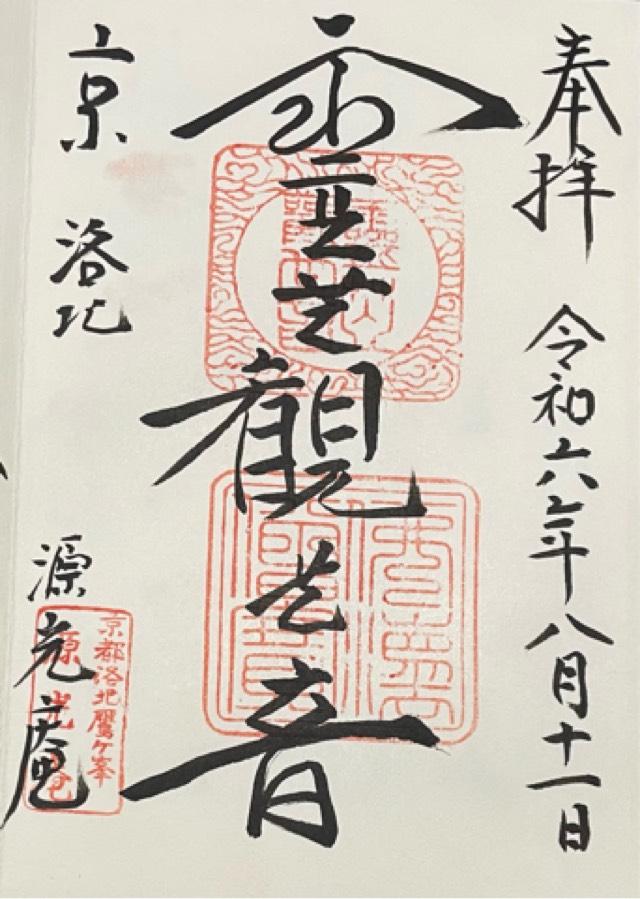 奉拝 令和六年八月十一日
霊芝観世音
京 洛北 源光庵
京都洛北鷹ケ峯
源光庵